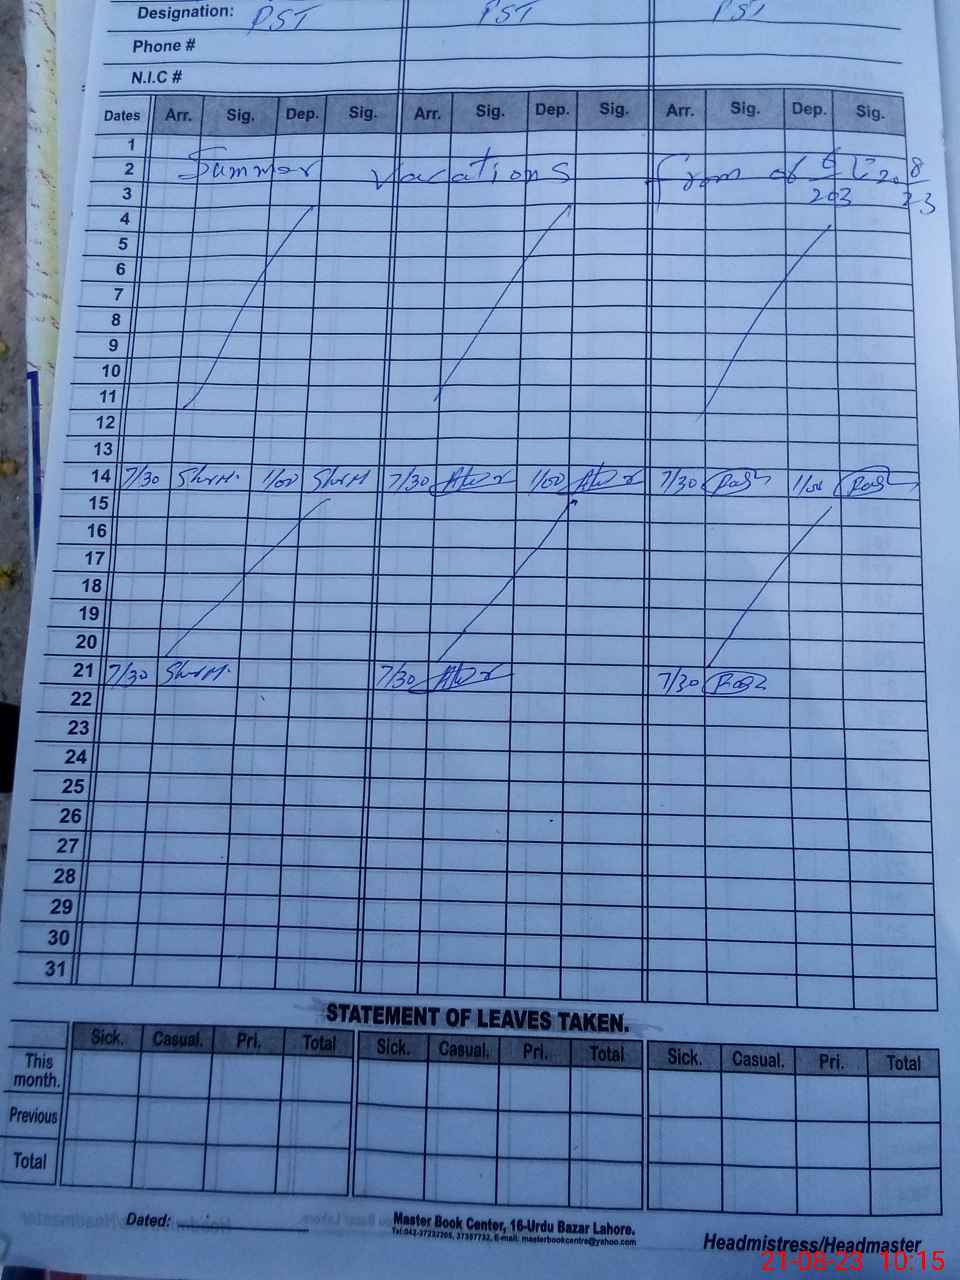 Designation: PST PST PST
Phone #
N.I.C #
Dates Arr. Sig. Dep. Sig. Arr. Sig. Dep. Sig. Arr. Sig. Dep. Sig.
1
2 Summer Vacations From
3
4
5
6
7
8
9
10
11
12
13
14 7/30 1/00 7/30 1/00 7/30 1/00
15
16
17
18
19
20
21 7/30 7/30 7/30
22
23
24
25
26
27
28
29
30
31
STATEMENT OF LEAVES TAKEN.
Sick. Casual. Pri. Total Sick. Casual. Pri. Total Sick. Casual. Pri. Total
This month.
Previous
Total
Dated:
Master Book Center, 16-Urdu Bazar Lahore.
Headmistress/Headmaster
21-08-23 10:15